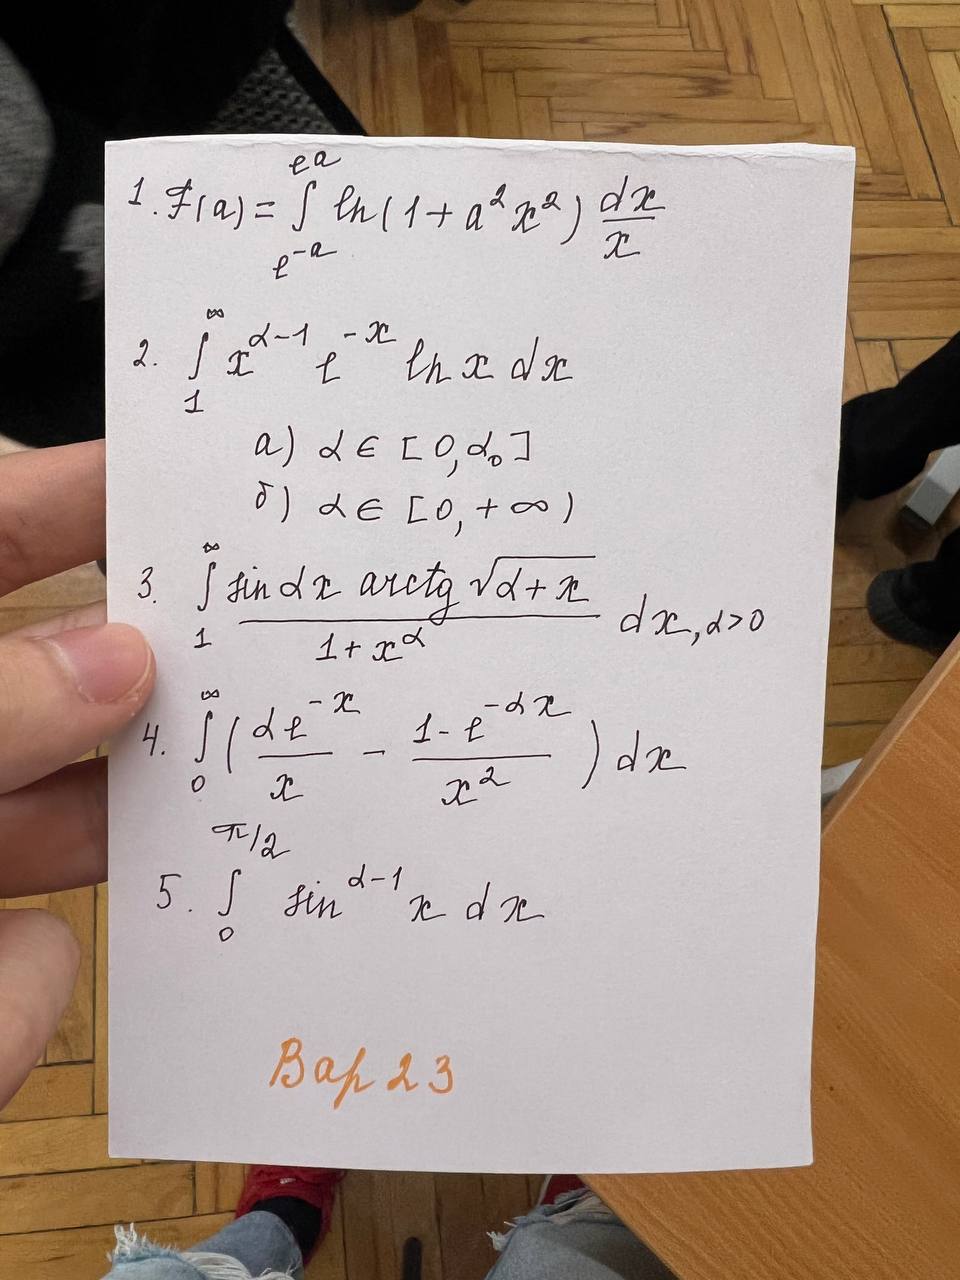 1. F(a) = ∫_{e^{-a}}^{e^{a}} ln(1 + a² x²) dx/x
2. ∫_{1}^{∞} x^{α-1} e^{-x} ln x dx
а) α ∈ [0, α₀]
б) α ∈ [0, +∞)
3. ∫_{1}^{∞} (sin αx arctg √(α + x))/(1 + x^{α}) dx, α>0
4. ∫_{0}^{∞} ( αe^{-x}/x - (1 - e^{-αx})/x² ) dx
5. ∫_{0}^{π/2} sin^{α-1} x dx
Вар 23